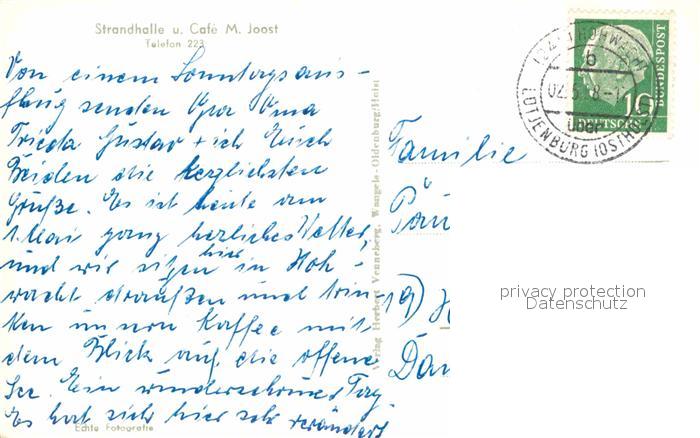 Strandhalle u. Café M. Joost
Telefon 223
Von einem Sonntagsaus-
flug senden Opa Oma
Frieda Gustav + ich Euch
Beiden die herzlichsten
Grüße. Es ist heute am
1. Mai ganz herrliches Wetter,
und wir sitzen hier in Hoh-
wacht draußen und trin-
ken unsern Kaffee mit
dem Blick auf die offene
See. Ein wunderschöner Tag.
Es hat sich hier sehr verändert
Echte Fotografie
Verlag Herbert Venneberg, Wangels-Oldenburg/Holst
Familie
19)
HOHWACHT
b
über
LÜTJENBURG (OSTHOLST)
10
DEUTSCHE
BUNDESPOST
privacy protection
Datenschutz